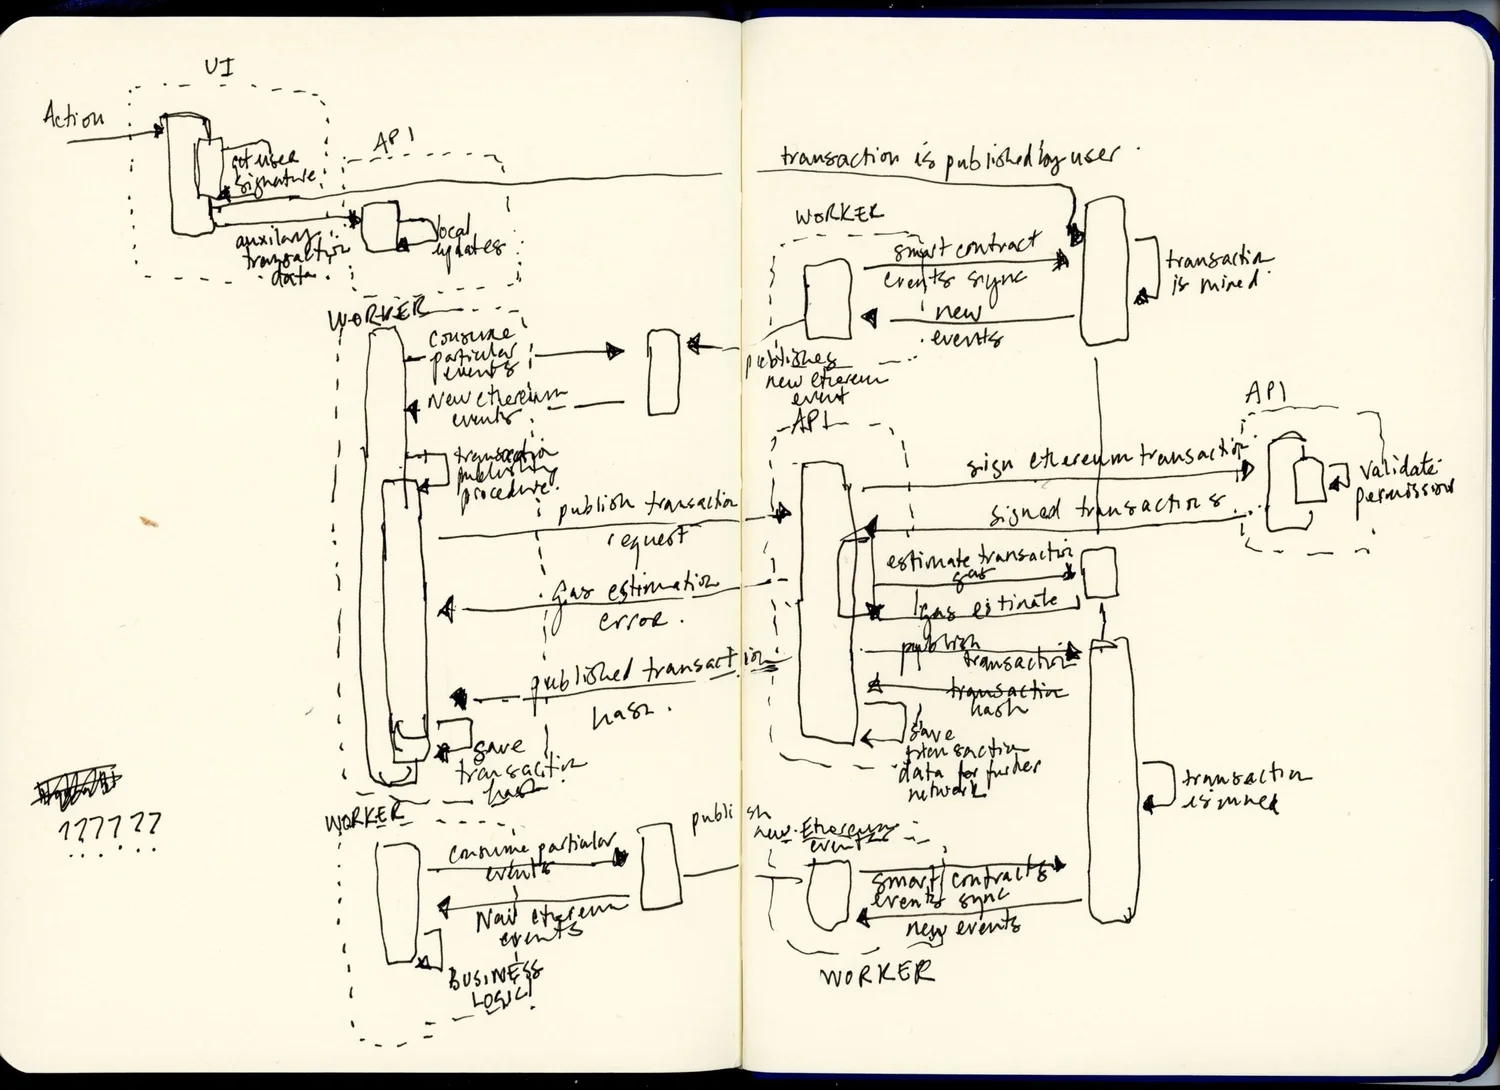 UI
Action
get user
signature
API
auxilary
transaction
data
local
updates
transaction is published by user
WORKER
smart contract
events sync
new
events
transaction
is mined
WORKER
Consume
particular
events
New ethereum
events
publishes
new etherem
event
transaction
publishing
procedure.
publish transaction
request
Gas estimation
error.
published transaction
hash.
save
transaction
hash
API
sign ethereum transaction
signed transactions
API
validate
permission
estimate transaction
gas
gas estimate
publish
transaction
transaction
hash
save
transaction
data for further
network
transaction
is mined
??????
WORKER
consume particular
events
New etherem
events
BUSINESS
LOGIC
publish
new Ethereum
event
smart contracts
events sync
new events
WORKER